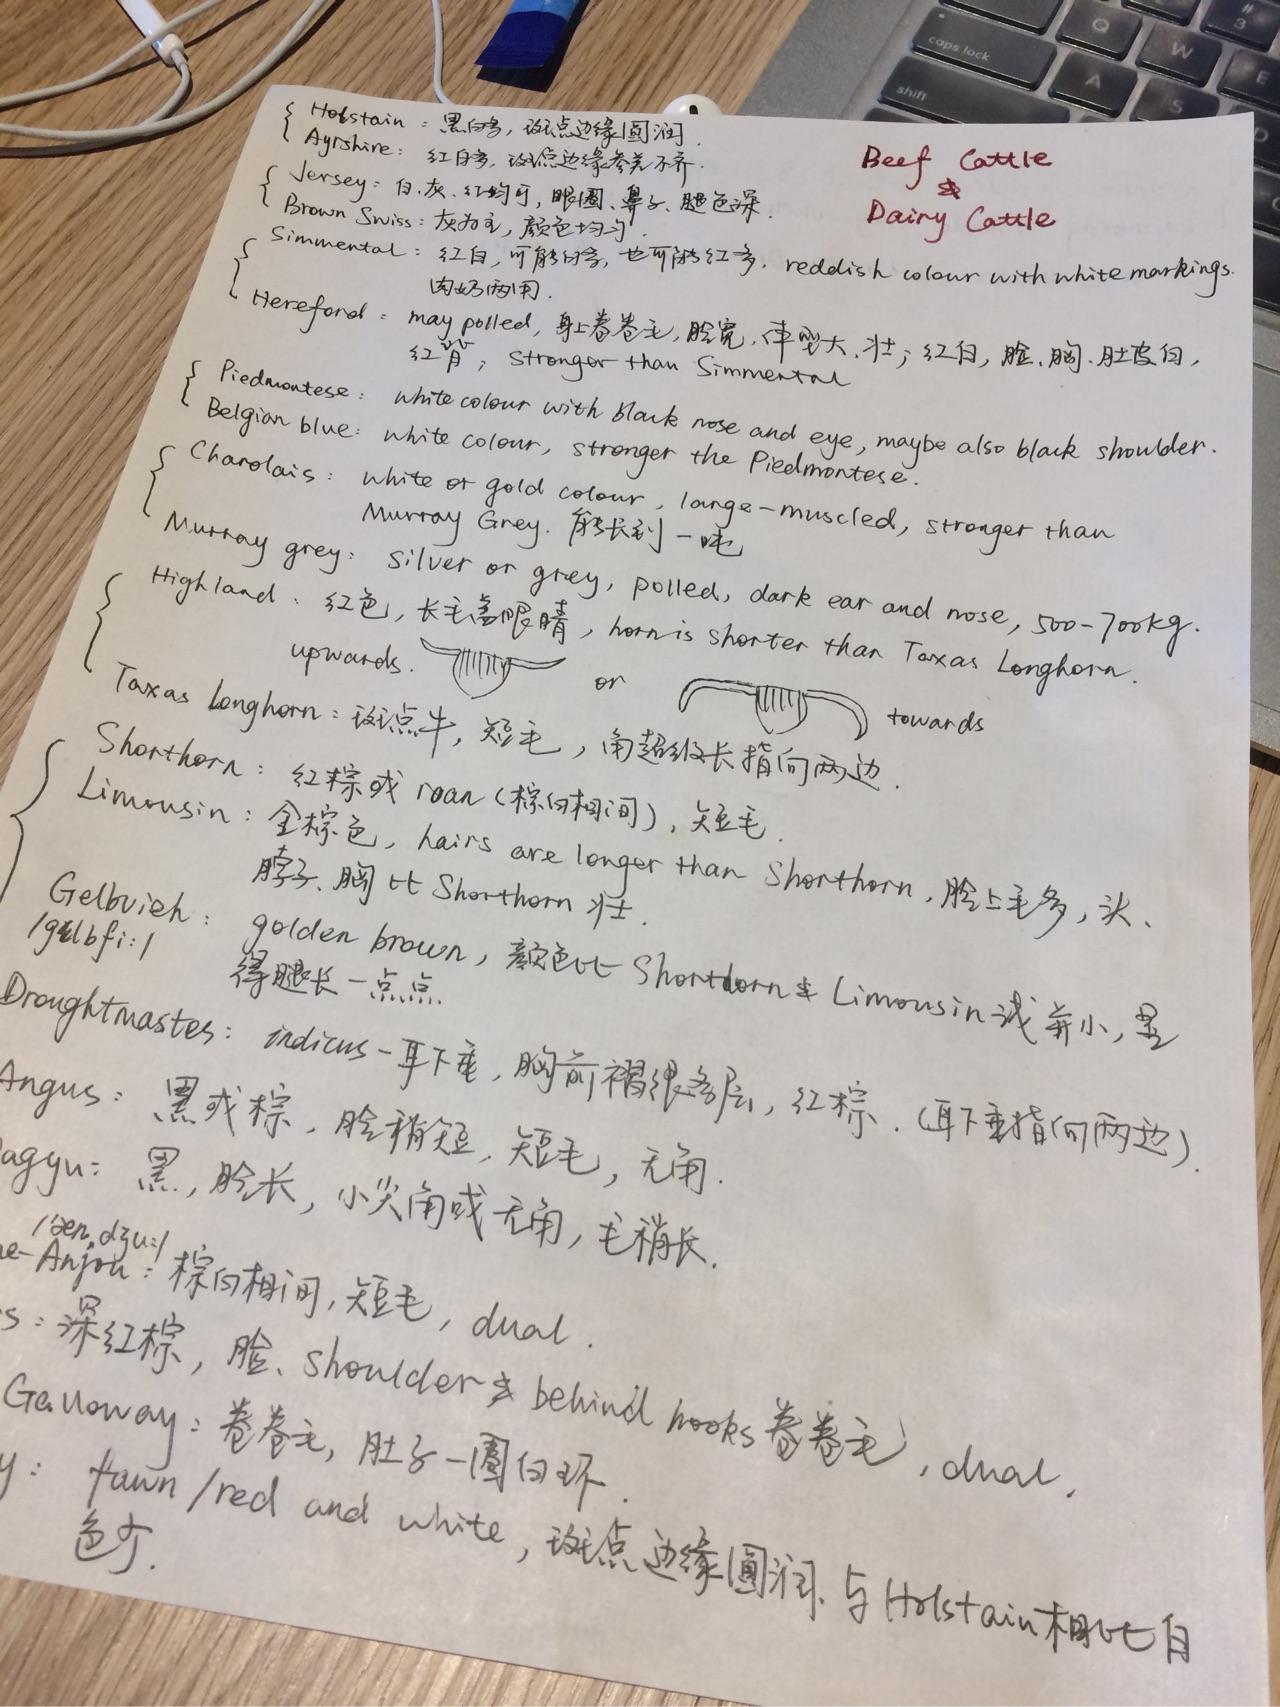 Beef Cattle
&
Dairy Cattle
Holstain：黑白多，斑点边缘圆润.
Ayrshire：红白多，斑点边缘参差不齐.
Jersey：白、灰、红均可，眼圈、鼻子、腿色深.
Brown Swiss：灰为主，颜色均匀.
Simmental：红白，可能白多，也可能红多. reddish colour with white markings.
肉奶两用.
Hereford：may polled，身上卷卷毛，脸宽、体型大、壮；红白，脸、胸、肚皮白，
红背；stronger than Simmental
Piedmontese：white colour with black nose and eye, maybe also black shoulder.
Belgian blue：white colour, stronger the Piedmontese.
Charolais：white or gold colour, large-muscled, stronger than
Murray Grey. 能长到一吨
Murray grey：silver or grey, polled, dark ear and nose, 500-700kg.
Highland：红色，长毛盖眼睛，horn is shorter than Taxas Longhorn.
upwards. or towards
Taxas Longhorn：斑点牛，短毛，角超级长指向两边.
Shorthorn：红棕或 roan（棕白相间），短毛.
Limousin：金棕色，hairs are longer than Shorthorn，脸上毛多，头、
脖子、胸比 Shorthorn 壮.
Gelbvieh：golden brown，颜色比 Shorthorn & Limousin 浅并小，显
/gɛlbfi:/ 得腿长一点点
Droughtmastes：indicus-耳下垂，胸前褶很多层，红棕.（耳下垂指向两边）.
Angus：黑或棕，脸稍短，短毛，无角.
agyu：黑，脸长，小尖角或无角，毛稍长.
ne-Anjou：棕白相间，短毛，dual.
s：深红棕，脸、shoulder & behind hooks 卷卷毛，dual.
Galloway：卷卷毛，肚子一圈白环.
y：fawn/red and white，斑点边缘圆润、与Holstain相比白
色少.